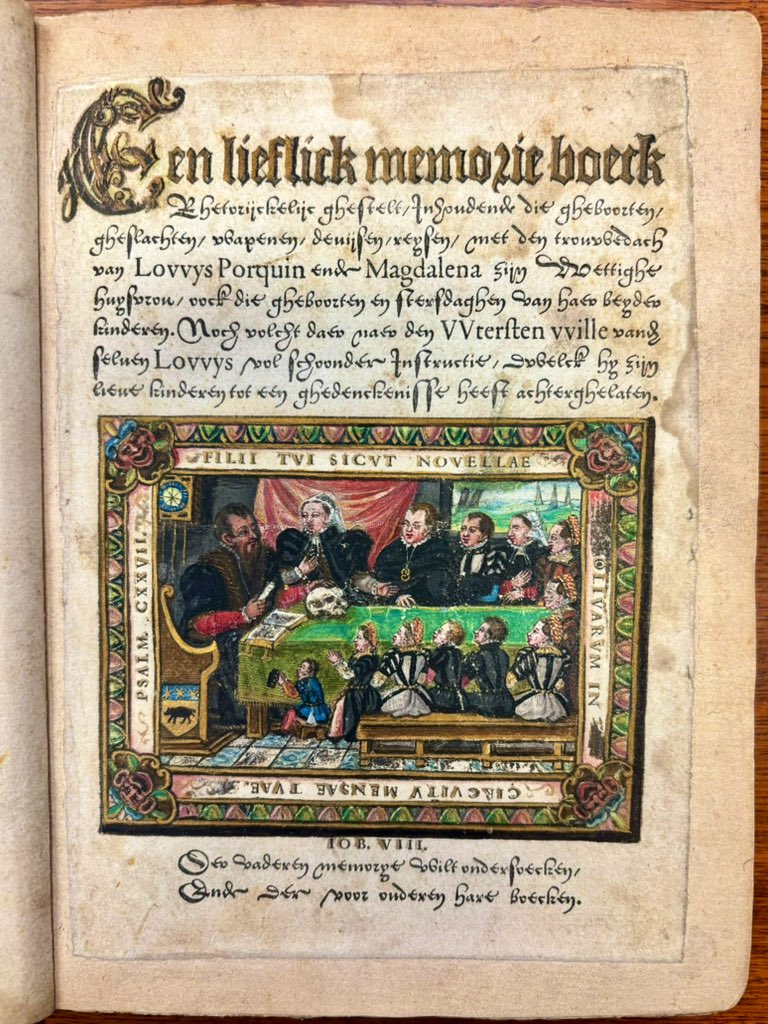 Een lieflick memorie boeck
Rhetorijckelijc ghestelt/ Inhoudende die gheboorten/
gheslachten/ wapenen/ deuijsen/ reysen/ met den trouwedach
van Lovvys Porquin ende Magdalena zijn Wettighe
huysvrou/ oock die gheboorten en sterfdaghen van haer beyder
kinderen. Noch volcht daer naer den VVtersten vville vandē
seluen Lovvys vol schoonder Instructie/ dwelck hy zijn
lieue kinderen tot een ghedenckenisse heeft achterghelaten.
FILII TVI SICVT NOVELLAE
OLIVARVM IN
CIRCVITV MENSAE TVAE.
PSALM. CXXVII.
IOB. VIII.
Der vaderen memorye wilt ondersoecken/
Ende der voor ouderen hare boecken.